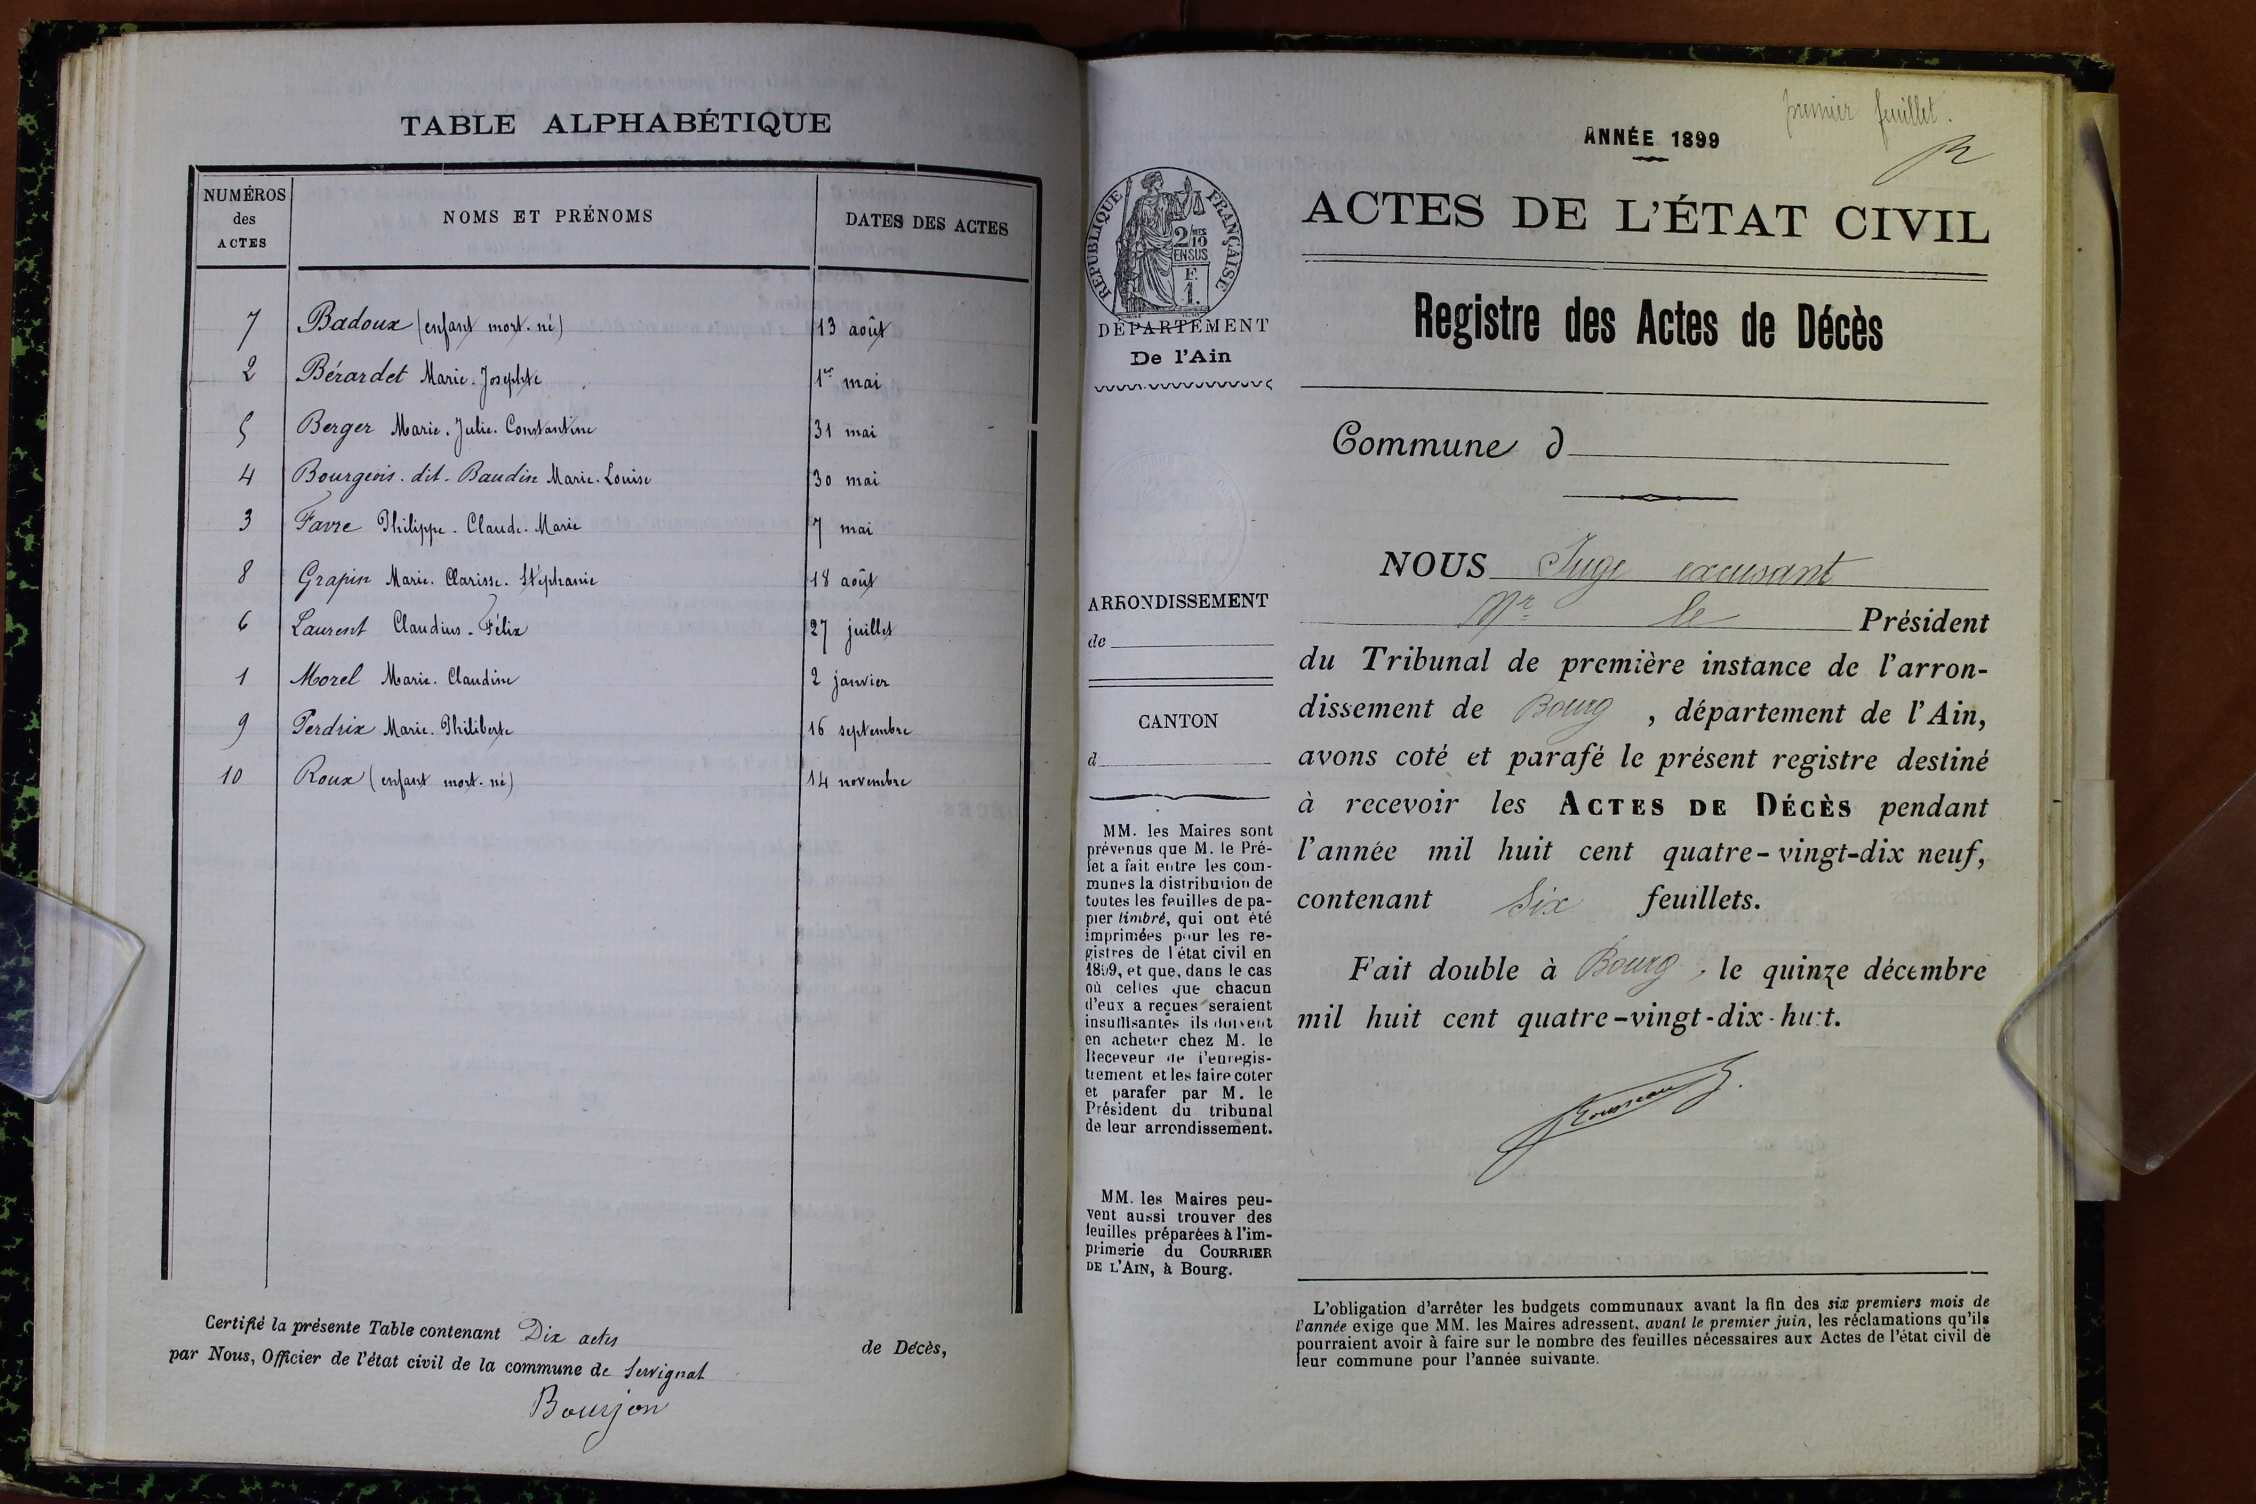 TABLE ALPHABÉTIQUE
NUMÉROS des ACTES
NOMS ET PRÉNOMS
DATES DES ACTES
7 Badoux (enfant mort-né) 13 août
2 Bérardet Marie-Josephte 1er mai
5 Berger Marie-Julie-Constantine 31 mai
4 Bourgeois-dit-Baudin Marie-Louise 30 mai
3 Favre Philippe-Claude-Marie 7 mai
8 Grapin Marie-Clarisse-Stéphanie 18 août
6 Laurent Claudius-Félix 27 juillet
1 Morel Marie-Claudine 2 janvier
9 Perdrix Marie-Philiberte 16 septembre
10 Roux (enfant mort-né) 14 novembre
Certifié la présente Table contenant Dix actes de Décès,
par Nous, Officier de l'état civil de la commune de Servignat
Bourjon
premier feuillet.
ANNÉE 1899
ACTES DE L'ÉTAT CIVIL
RÉPUBLIQUE FRANÇAISE
2/10 MES
EN SUS
F.
1.
DÉPARTEMENT
De l'Ain
Registre des Actes de Décès
Commune d
ARRONDISSEMENT
de
CANTON
d
MM. les Maires sont
prévenus que M. le Pré-
fet a fait entre les com-
munes la distribution de
toutes les feuilles de pa-
pier timbré, qui ont été
imprimées pour les re-
gistres de l'état civil en
1899, et que, dans le cas
où celles que chacun
d'eux a reçues seraient
insuffisantes ils doivent
en acheter chez M. le
Receveur de l'enregis-
trement et les faire coter
et parafer par M. le
Président du tribunal
de leur arrondissement.
MM. les Maires peu-
vent aussi trouver des
feuilles préparées à l'im-
primerie du COURRIER
DE L'AIN, à Bourg.
NOUS Juge excusant
Mr le Président
du Tribunal de première instance de l'arron-
dissement de Bourg , département de l'Ain,
avons coté et parafé le présent registre destiné
à recevoir les ACTES DE DÉCÈS pendant
l'année mil huit cent quatre-vingt-dix neuf,
contenant Six feuillets.
Fait double à Bourg, le quinze décembre
mil huit cent quatre-vingt-dix-huit.
L'obligation d'arrêter les budgets communaux avant la fin des six premiers mois de
l'année exige que MM. les Maires adressent, avant le premier juin, les réclamations qu'ils
pourraient avoir à faire sur le nombre des feuilles nécessaires aux Actes de l'état civil de
leur commune pour l'année suivante.